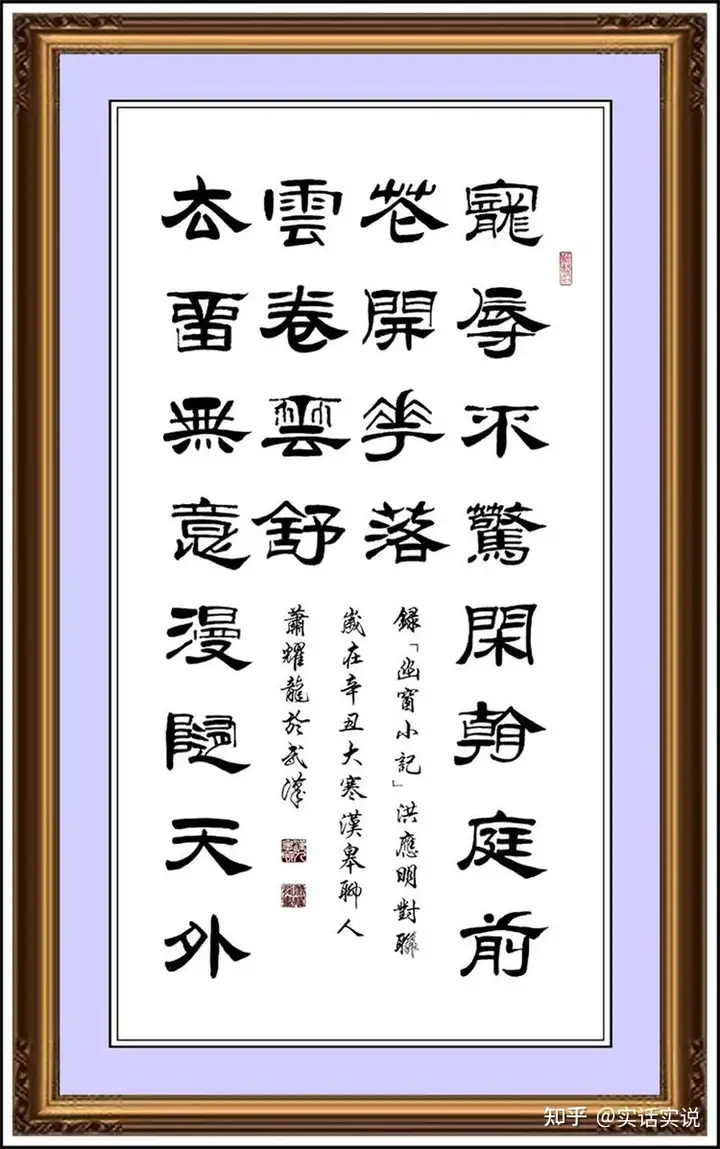 寵辱不驚閑看庭前
花開花落
雲卷雲舒
去留無意漫隨天外
録「幽窗小記」洪應明對聯
歲在辛丑大寒漢皋聊人
蕭耀龍於武漢
知乎 @实话实说